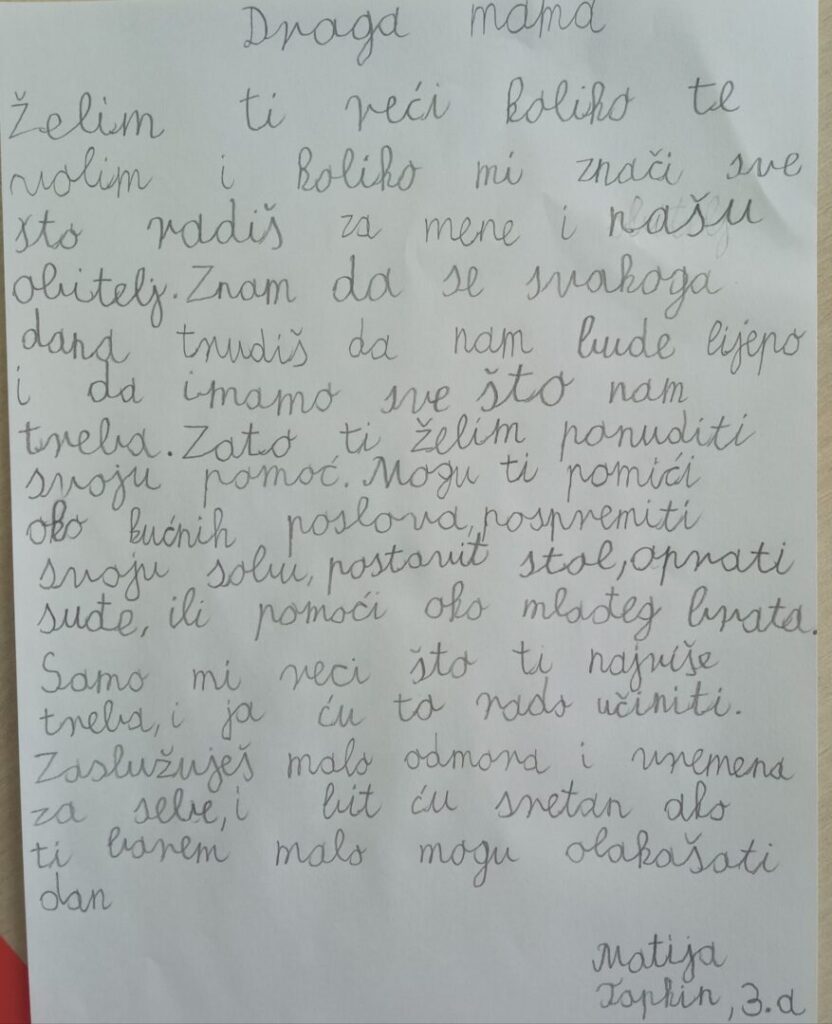 Draga mama
Želim ti reći koliko te
volim i koliko mi znači sve
što radiš za mene i našu
obitelj. Znam da se svakoga
dana trudiš da nam bude lijepo
i da imamo sve što nam
treba. Zato ti želim ponuditi
svoju pomoć. Mogu ti pomići
oko kućnih poslova, pospremiti
svoju sobu, postavit stol, oprati
suđe, ili pomoći oko mlađeg brata.
Samo mi reci što ti najviše
treba, i ja ću to rado učiniti.
Zaslužuješ malo odmora i vremena
za sebe, i bit ću sretan ako
ti barem malo mogu olakašati
dan
Matija
3.d